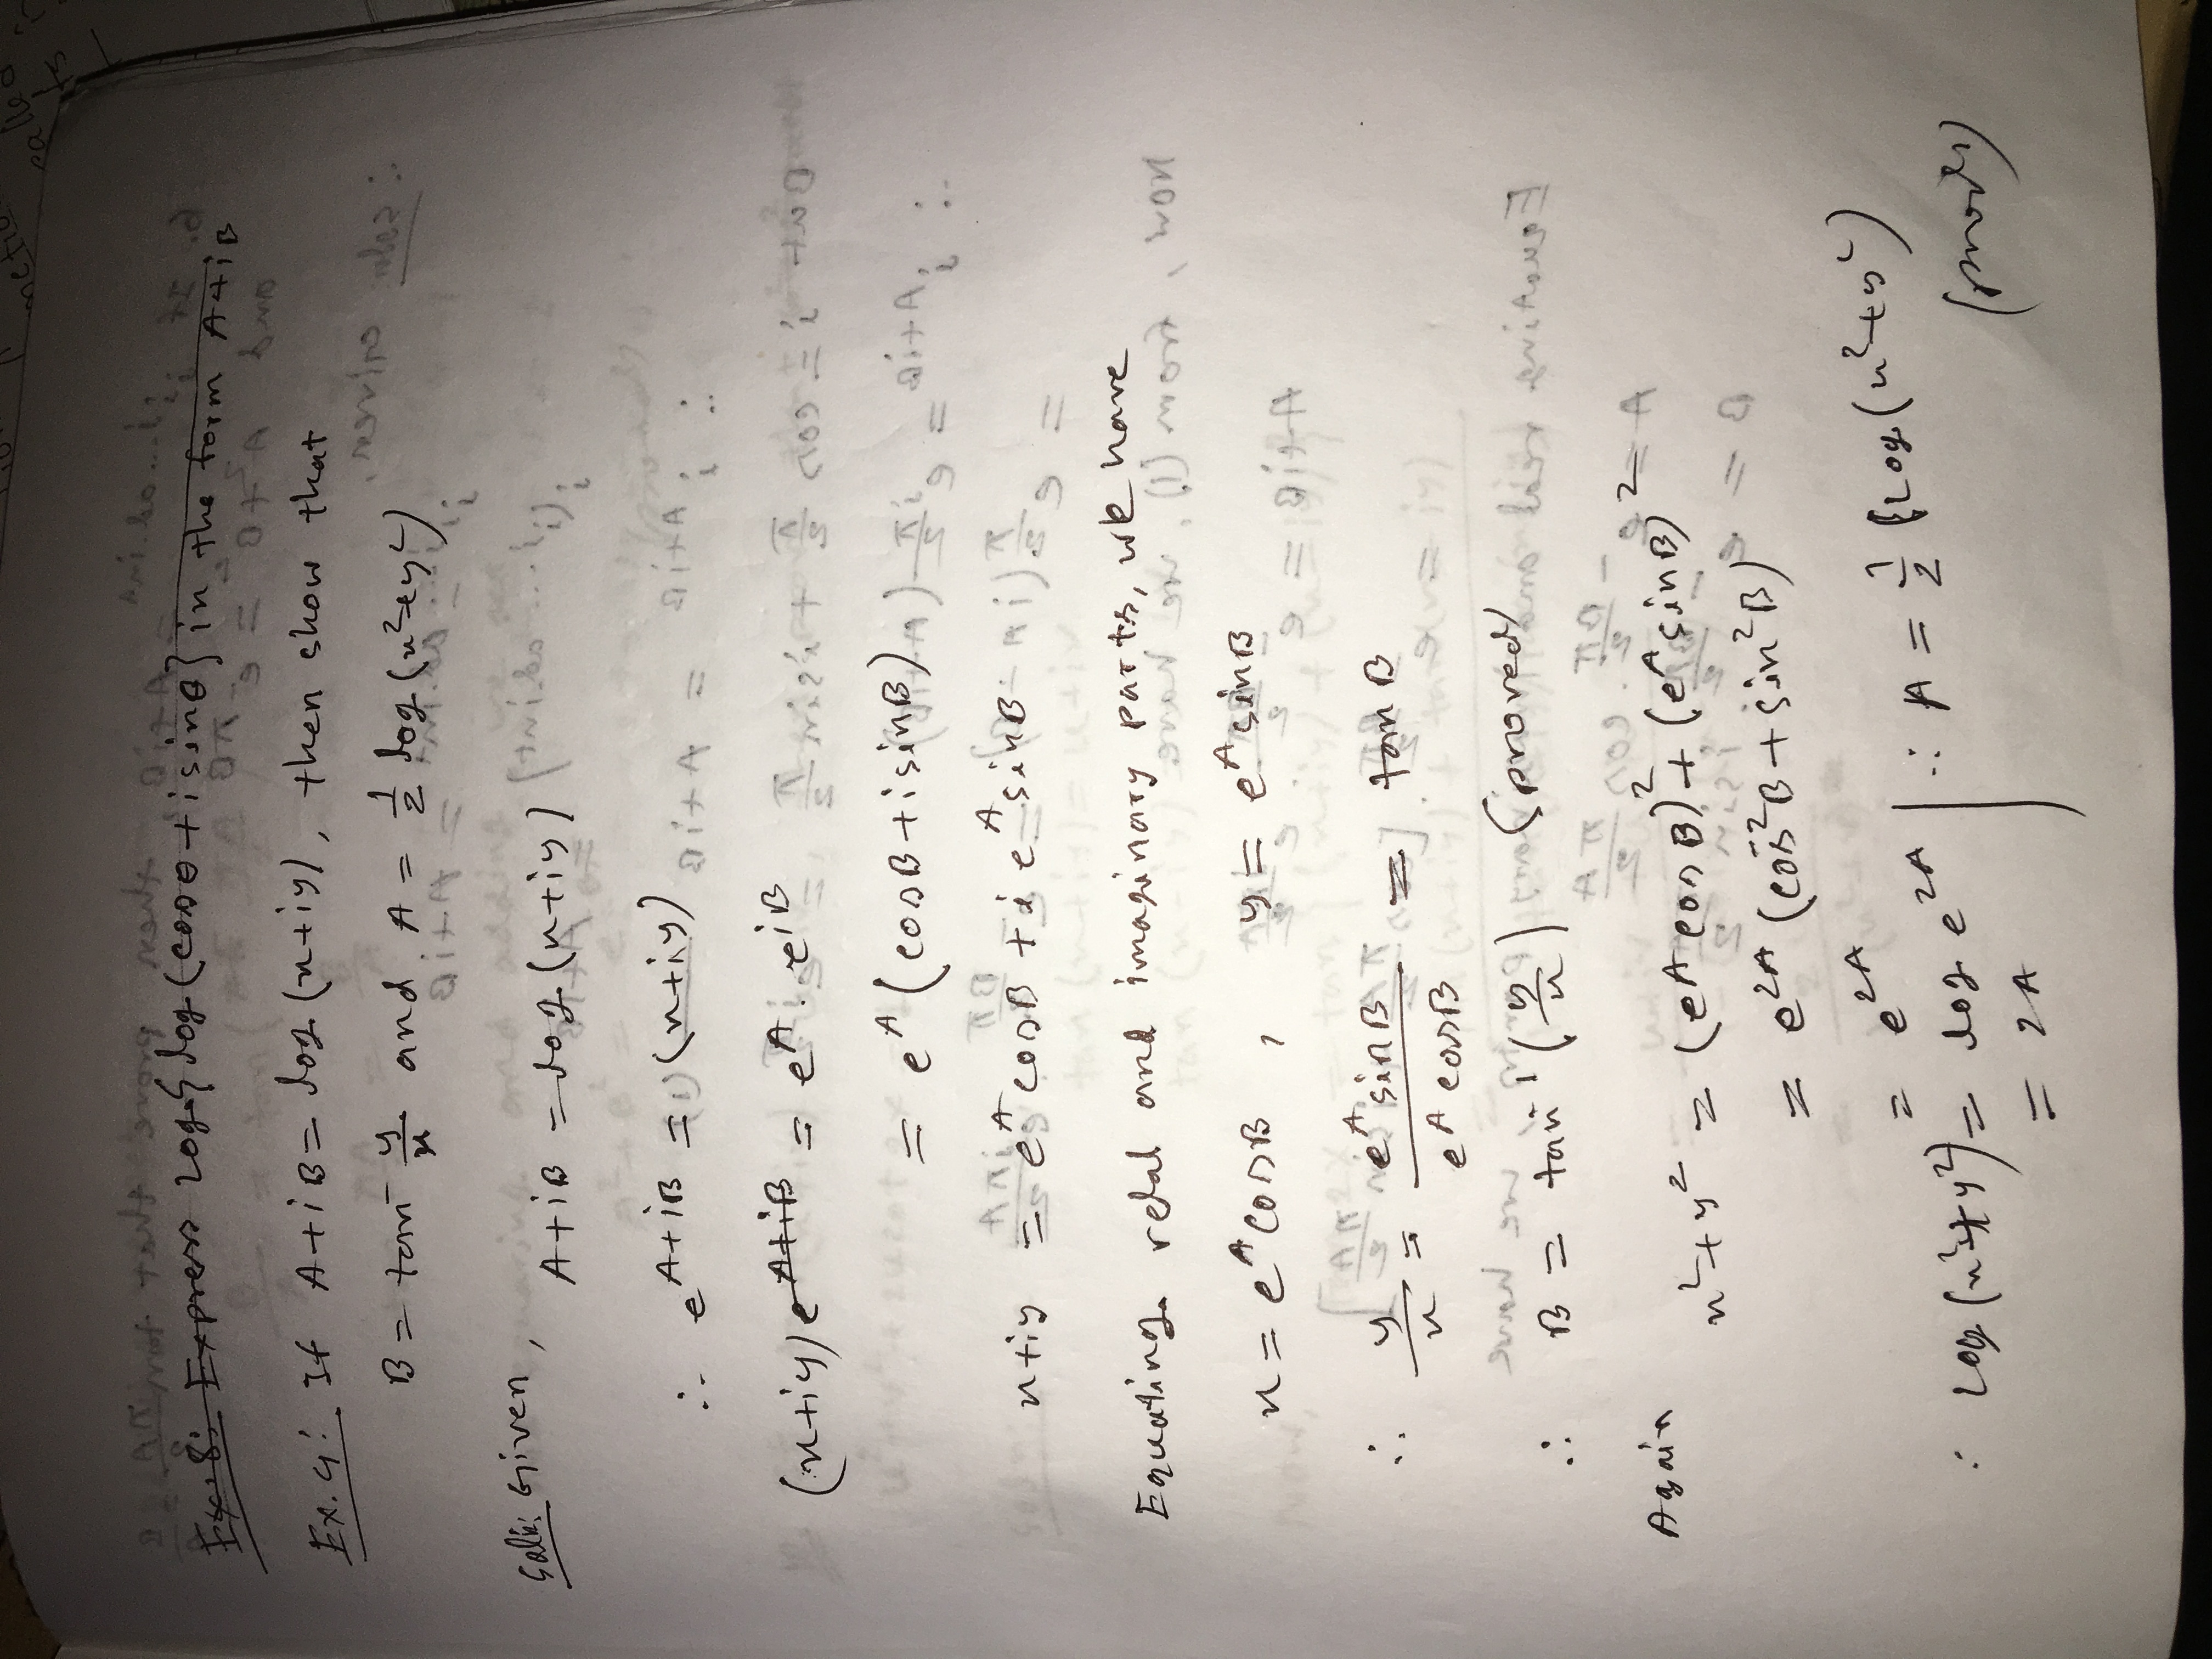 Ex.8: Express Log{log(cosθ+isinθ} in the form A+iB
Ex.4: If A+iB = log(x+iy), then show that
B = tan⁻ y/x and A = 1/2 log(x²+y²)
Soln: Given,
A+iB = log(x+iy)
∴ e^A+iB = (x+iy)
(x+iy) e^A+iB = e^A . e^iB
= e^A (cosB+isinB)
x+iy = e^A cosB + i e^A sinB
Equating real and imaginary parts, we have
x = e^A cosB , y = e^A sinB
∴ y/x = e^A sinB / e^A cosB = tan B
∴ B = tan⁻¹(y/x) (proved)
Again
x²+y² = (e^A cosB)² + (e^A sinB)²
= e^2A (cos²B + sin²B)
= e^2A
∴ Log(x²+y²) = log e^2A
= 2A
∴ A = 1/2 Log(x²+y²)